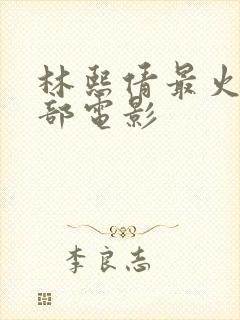 林熙倩最火
部電影
李良志